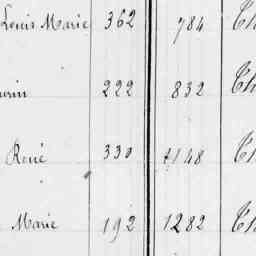 Louis Marie 362 784 Th
urin 222 832 Th
René 330 1148 Th
Marie 192 1282 Th